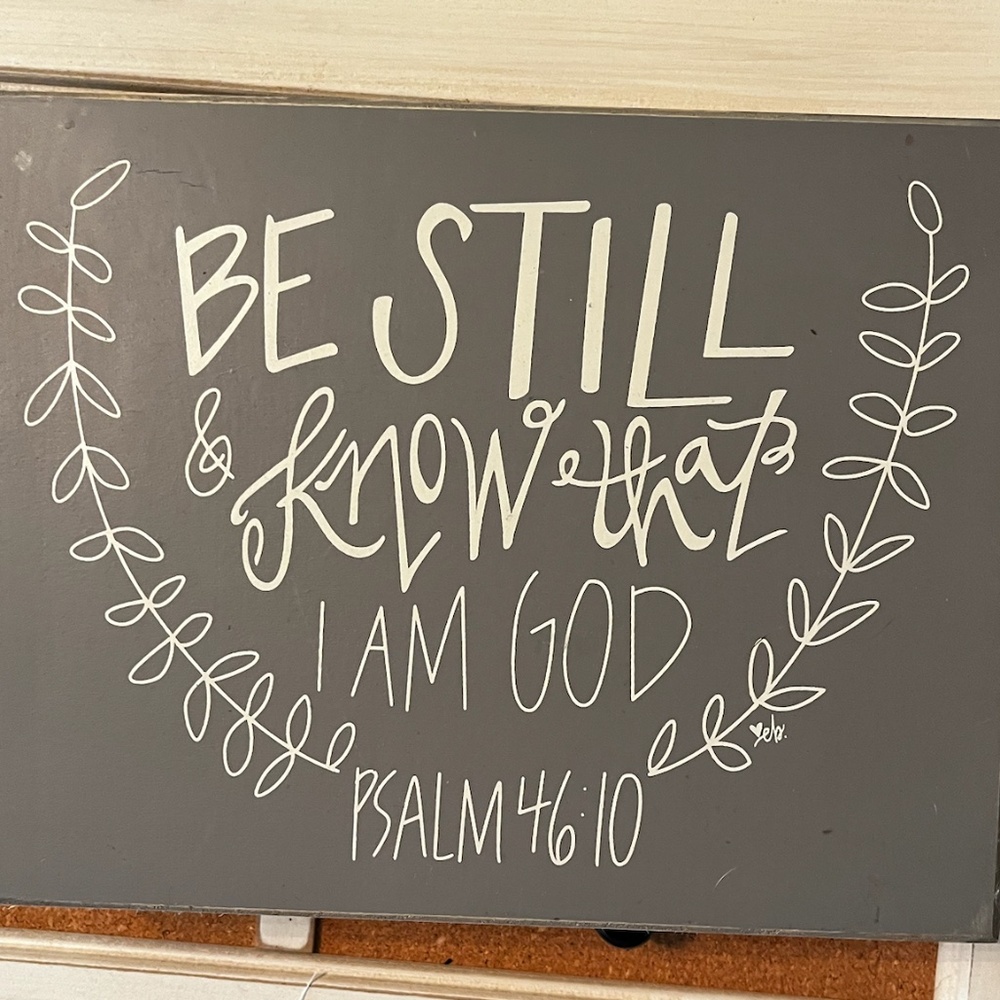 BE STILL
& know that
I AM GOD
PSALM 46:10